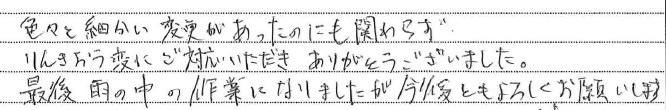 色々と細かい変更があったのにも関わらず
りんきおう変にご対応いただきありがとうございました。
最後雨の中の作業になりましたが今後ともよろしくお願いします